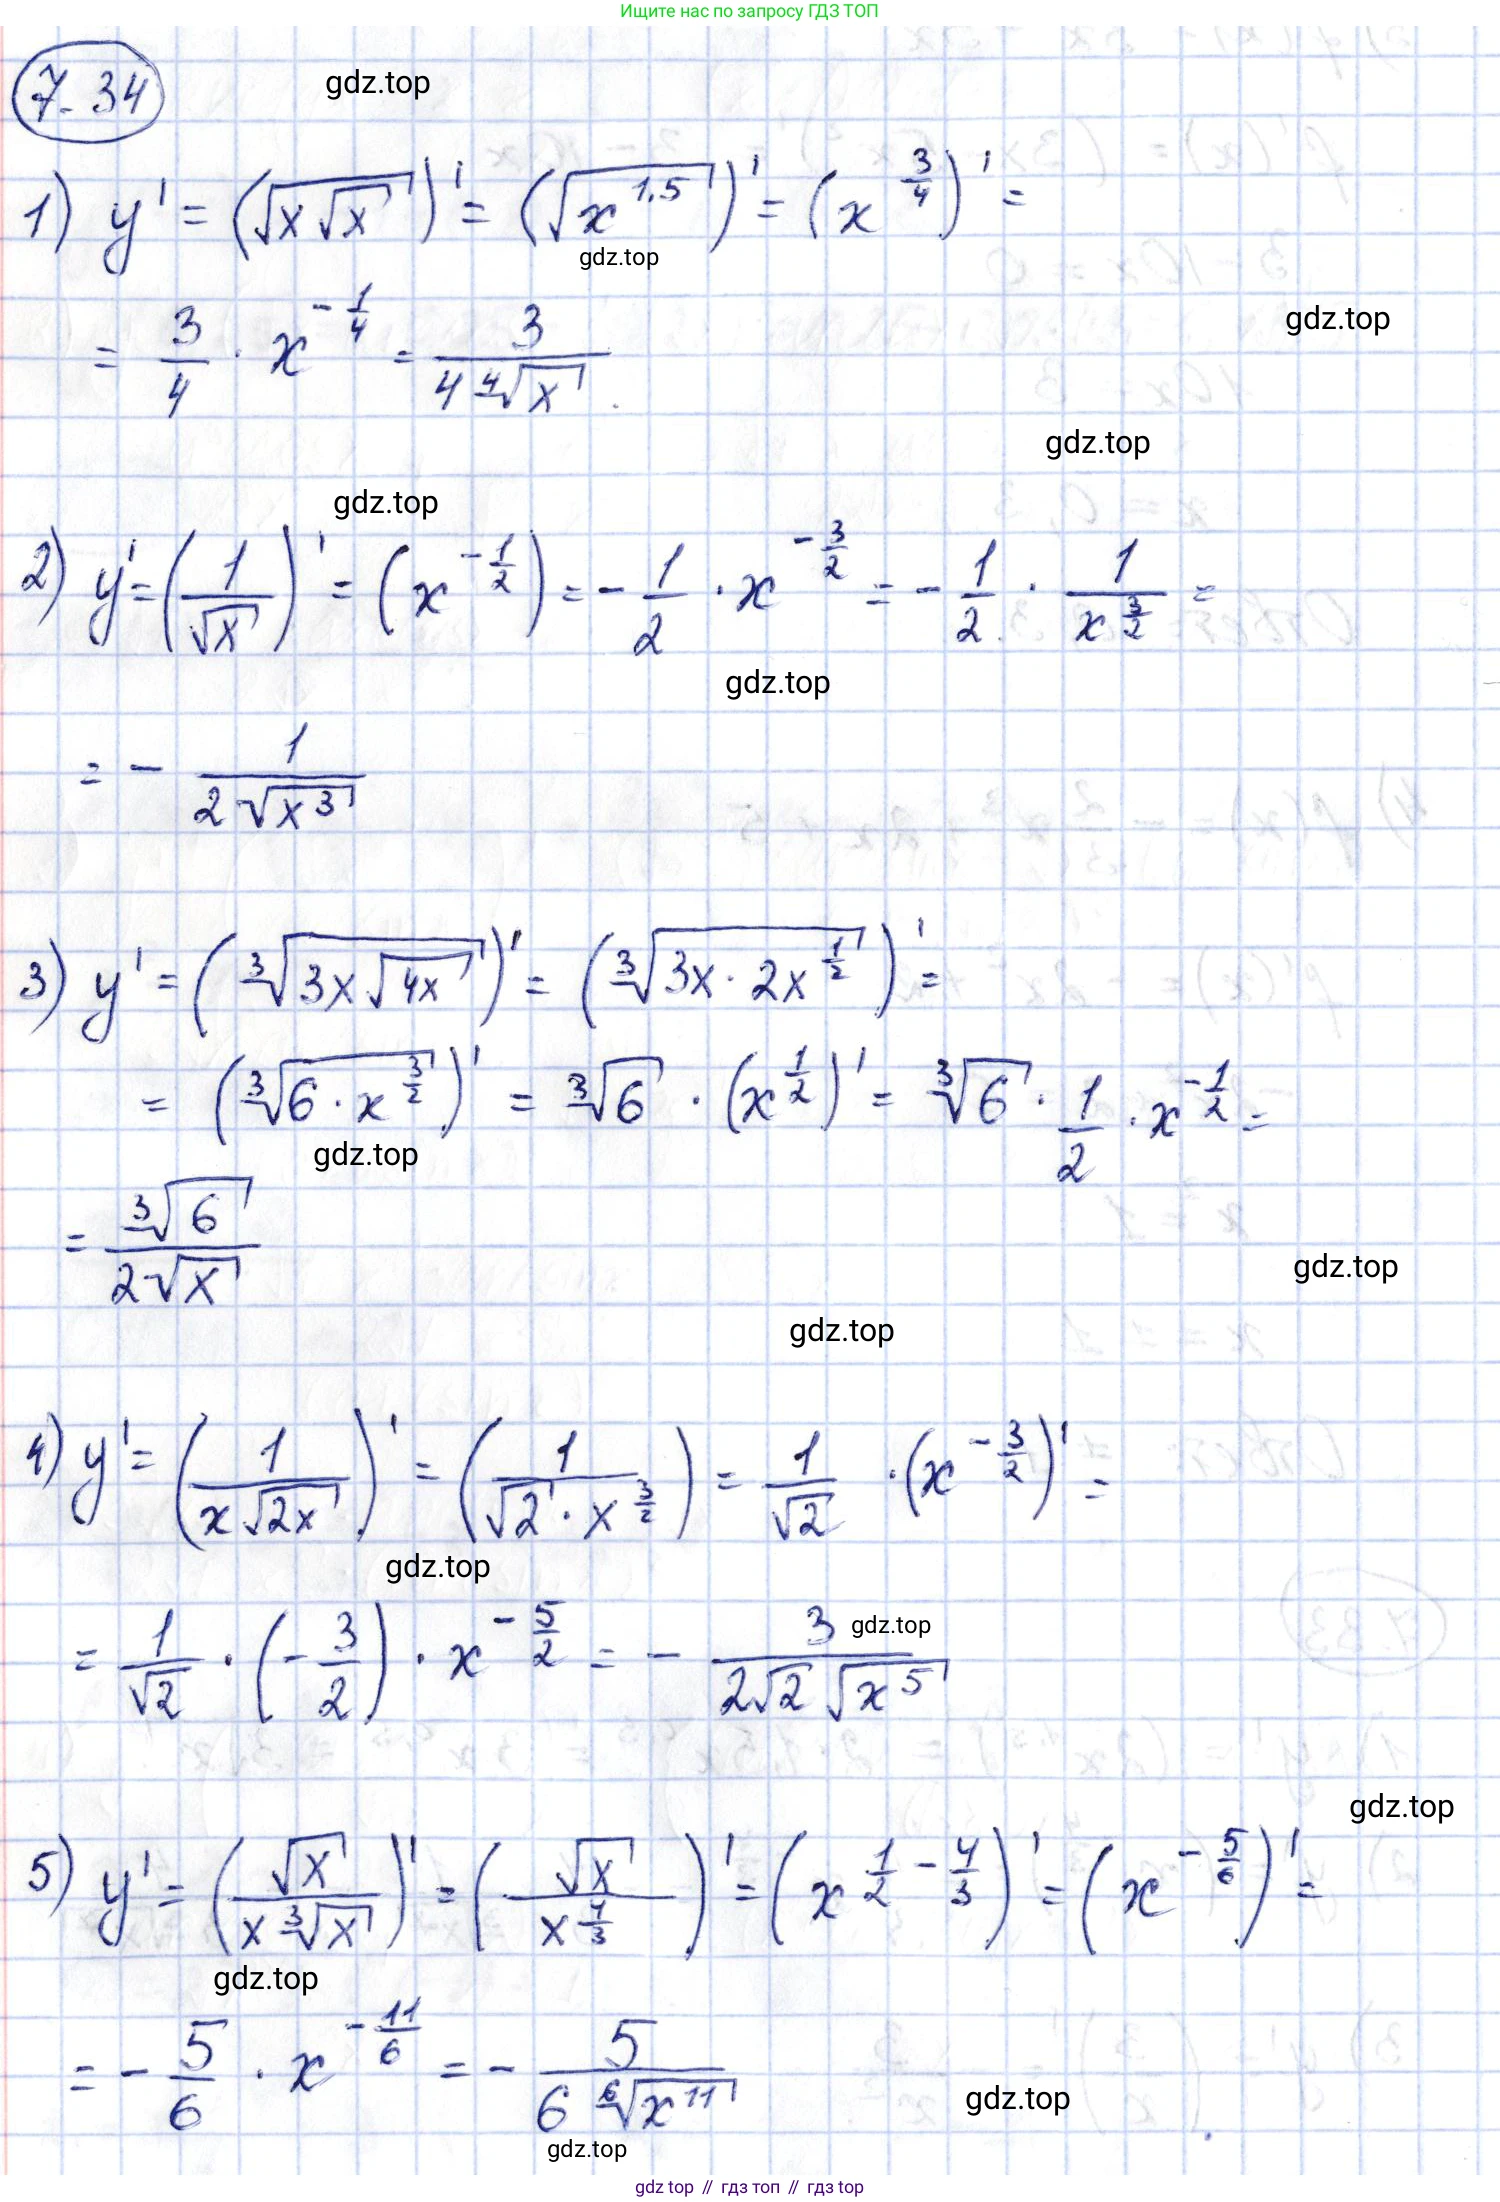 Ищите нас по запросу ГДЗ ТОП
7.34
gdz.top
1) y' = (√(x√x))' = (√(x^1,5))' = (x^(3/4))' =
gdz.top
= 3/4 · x^(-1/4) = 3/(4 ⁴√x).
gdz.top
gdz.top
gdz.top
2) y' = (1/√x)' = (x^(-1/2)) = -1/2 · x^(-3/2) = -1/2 · 1/x^(3/2) =
gdz.top
= - 1/(2√(x^3))
3) y' = (³√(3x√(4x)))' = (³√(3x · 2x^(1/2)))' =
= (³√(6 · x^(3/2)))' = ³√6 · (x^(1/2))' = ³√6 · 1/2 · x^(-1/2) =
gdz.top
= ³√6/(2√x)
gdz.top
gdz.top
4) y' = (1/(x√(2x)))' = (1/(√2 · x^(3/2))) = 1/√2 · (x^(-3/2))' =
gdz.top
= 1/√2 · (-3/2) · x^(-5/2) = - 3/(2√2 √(x^5))
gdz.top
gdz.top
5) y' = (√x/(x ³√x))' = (√x/x^(4/3))' = (x^(1/2 - 4/3))' = (x^(-5/6))' =
gdz.top
= - 5/6 · x^(-11/6) = - 5/(6 ⁶√(x^11))
gdz.top
gdz.top
gdz.top // гдз топ // гдз top